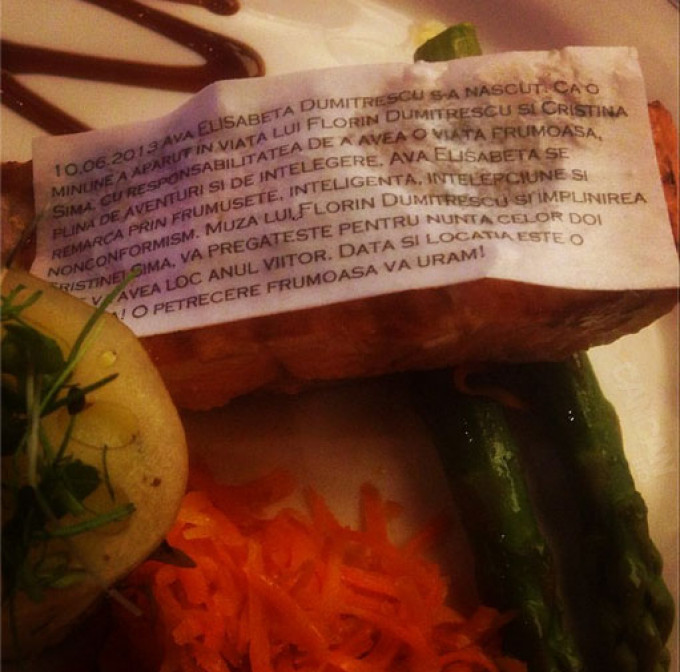 10.06.2013 AVA ELISABETA DUMITRESCU S-A NASCUT. CA O
MINUNE A APARUT IN VIATA LUI FLORIN DUMITRESCU SI CRISTINA
SIMA, CU RESPONSABILITATEA DE A AVEA O VIATA FRUMOASA,
PLINA DE AVENTURI SI DE INTELEGERE. AVA ELISABETA SE
REMARCA PRIN FRUMUSETE, INTELIGENTA, INTELEPCIUNE SI
NONCONFORMISM. MUZA LUI FLORIN DUMITRESCU SI IMPLINIREA
CRISTINEI SIMA, VA PREGATESTE PENTRU NUNTA CELOR DOI
AVEA LOC ANUL VIITOR. DATA SI LOCATIA ESTE O
O PETRECERE FRUMOASA VA URAM!